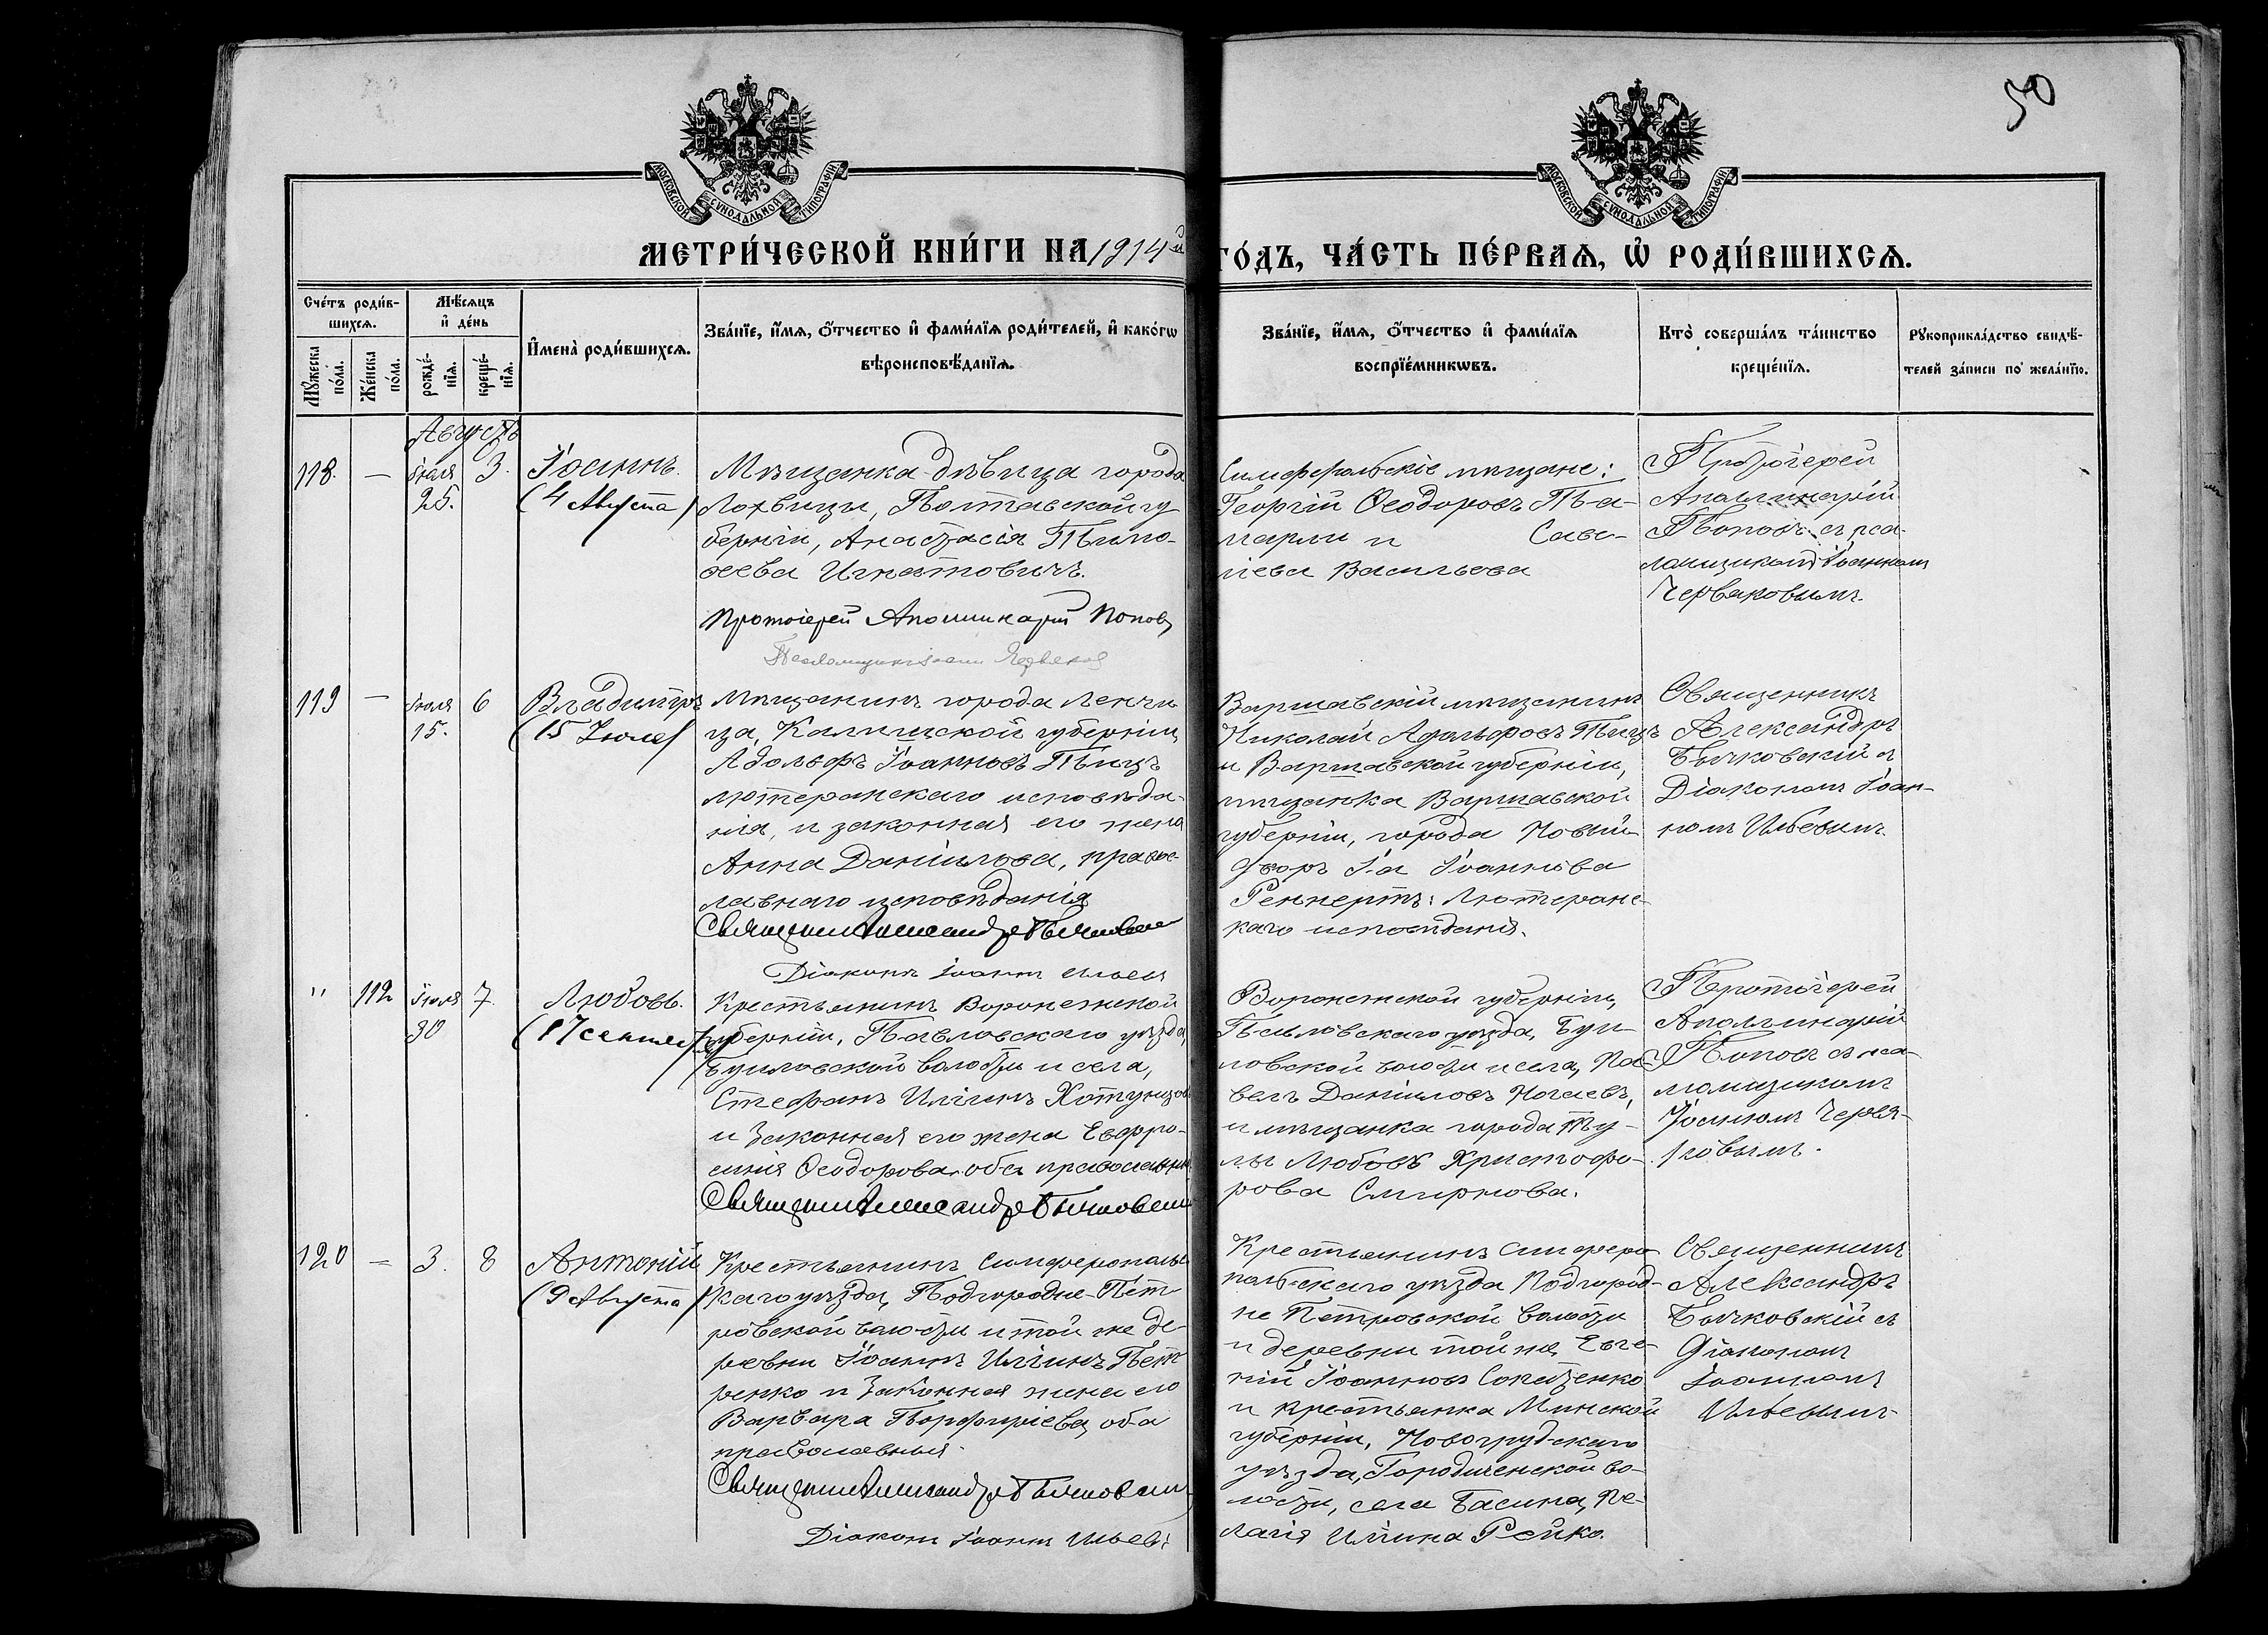 50
МОСКОВСКОЙ СѴНОДАЛЬНОЙ ТИПОГРАФІИ
МОСКОВСКОЙ СѴНОДАЛЬНОЙ ТИПОГРАФІИ
МЕТРИ́ЧЕСКОЙ КНИ́ГИ НА 1914й ГО́ДЪ, ЧА́СТЬ ПЕ́РВАѦ, Ѡ҆ РОДИ́ВШИХСѦ.
Сче́тъ роди́в-
шихсѧ.
Мꙋ́жеска по́ла.
Же́нска по́ла.
Мѣ́сѧцъ
и҆ де́нь
рожде́-нїѧ.
креще́-нїѧ.
И҆мена̀ роди́вшихсѧ.
Зва́нїе, и҆́мѧ, ѻ҆́тчество и҆ фами́лїѧ роди́телей, и҆ како́гѡ
вѣроисповѣ́данїѧ.
Зва́нїе, и҆́мѧ, ѻ҆́тчество и҆ фами́лїѧ
воспрїе́мникѡвъ.
Кто̀ соверша́лъ та́инство
креще́нїѧ.
Рꙋкоприкла́дство свидѣ́-
телей за́писи по жела́нїю.
Августъ
118. — Іюля 25. 3.
Іоаннъ.
(4 Августа)
Мѣщанка дѣвица города
Лохвицы, Полтавской гу
берніи, Анастасія Тимо-
ѳеева Игнатовичъ.
Протоіерей Аполлинарій Поповъ
Псаломщикъ Іоаннъ Червяковъ
Симферопольскіе мѣщане:
Георгій Ѳеодоровъ
и
Васильева
Протоіерей
Аполлинарій
Поповъ съ пса-
ломщикомъ Іоанномъ
Червяковымъ.
119 — Іюля 15. 6
Владиміръ
(15 Іюля)
Мѣщанинъ города Ленчи
ца, Калишской губерніи,
Адольфъ Іоанновъ
лютеранскаго исповѣда-
нія, и законная его жена
Анна Даніилова, правос-
лавнаго исповѣданія
Священникъ Александръ Бычковскій
Діаконъ Іоаннъ Ильевъ
Варшавскій мѣщанинъ
Николай Адольфовъ
и Варшавской губерніи,
мѣщанка Варшавской
губерніи, города Новый-
Дворъ Іоаннова
Реннертъ: Лютеранс-
каго исповѣданія.
Священникъ
Александръ
Бычковскій съ
Діакономъ Іоан-
номъ Ильевымъ
" 112 Іюля 30 7.
Любовь.
(17 сентября)
Крестьянинъ Воронежской
губерніи, Павловскаго уѣзда,
Буйловской волости и села,
Стефанъ Иліинъ
и законная его жена Евфро-
синія Ѳеодорова оба православные
Священникъ Александръ Бычковскій
Воронежской губерніи,
Павловскаго уѣзда, Буй-
ловской волости и села, Па-
велъ Даніиловъ Ногаевъ,
и мѣщанка города Ту-
лы Любовь Христофо-
рова Смирнова.
Протоіерей
Аполлинарій
Поповъ съ пса-
ломщикомъ
Іоанномъ Червя-
ковымъ.
120 — 3. 8
Антоній
(9 Августа)
Крестьянинъ Симферопольс
каго уѣзда, Подгородне-Пет
ровской волости и той же де-
ревни Іоаннъ Иліинъ Пет
ренко и законная жена его
Варвара Порфиріева, оба
православныя.
Священникъ Александръ Бычковскій
Діаконъ Іоаннъ Ильевъ
Крестьянинъ Симферо-
польскаго уѣзда Подгород-
не Петровской волости
и деревни той же, Евге-
ній Іоанновъ
и крестьянка Минской
губерніи, Новогрудскаго
уѣзда, Городиченской во-
лости, села Басина, Пе-
лагія Иліина Рейко.
Священникъ
Александръ
Бычковскій съ
Діакономъ
Іоанномъ
Ильевымъ